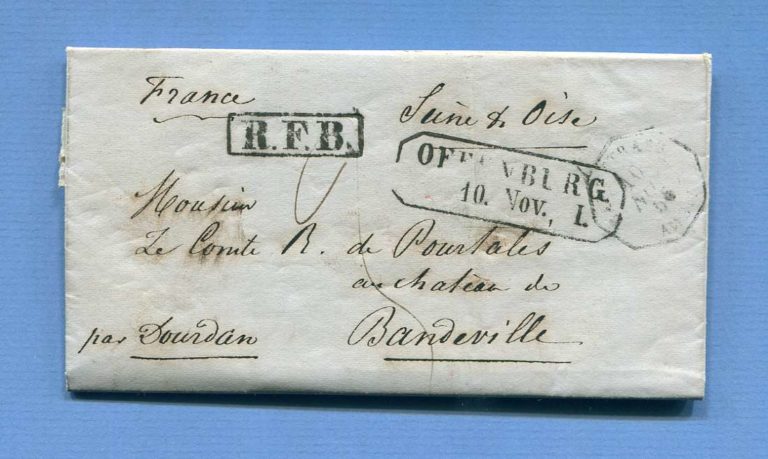 France
Seine & Oise
R. F. B.
OFFENBURG
10. Nov., I.
Monsieur
Le Comte R. de Pourtales
au chateau de
par Dourdan
Bandeville